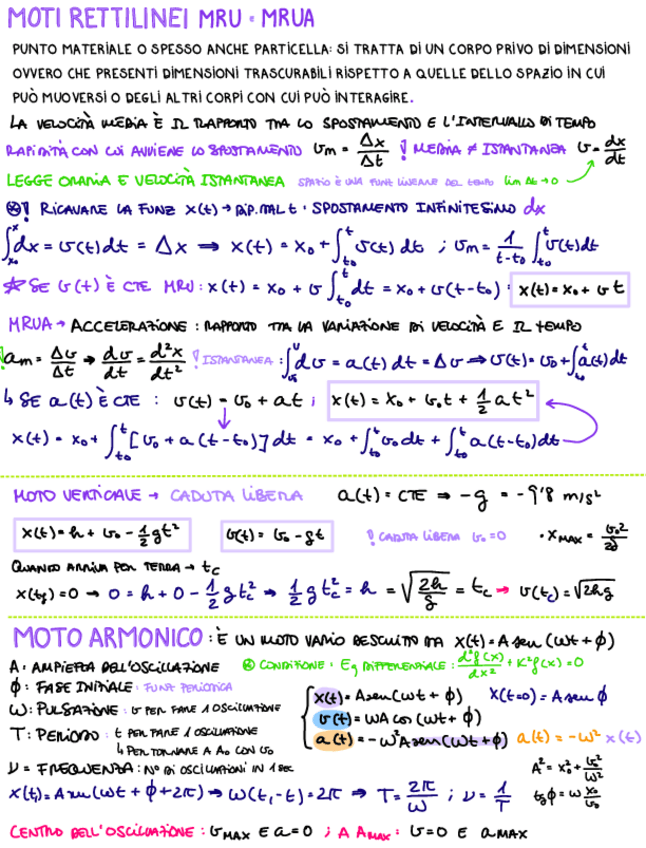 MOTI RETTILINEI MRU e MRUA
PUNTO MATERIALE O SPESSO ANCHE PARTICELLA: SI TRATTA DI UN CORPO PRIVO DI DIMENSIONI
OVVERO CHE PRESENTI DIMENSIONI TRASCURABILI RISPETTO A QUELLE DELLO SPAZIO IN CUI
PUÒ MUOVERSI O DEGLI ALTRI CORPI CON CUI PUÒ INTERAGIRE.
LA VELOCITÀ MEDIA È IL RAPPORTO TRA LO SPOSTAMENTO E L'INTERVALLO DI TEMPO
RAPIDITÀ CON CUI AVVIENE LO SPOSTAMENTO v_m = Δx/Δt ! MEDIA ≠ ISTANTANEA v = dx/dt
LEGGE ORARIA E VELOCITÀ ISTANTANEA SPAZIO È UNA FUNZ LINEARE DEL TEMPO lim Δt→0
! RICAVARE LA FUNZ x(t) → DIP. DAL t · SPOSTAMENTO INFINITESIMO dx
∫_{x₀}^{x} dx = v(t)dt = Δx ⇒ x(t) = x₀ + ∫_{t₀}^{t} v(t) dt ; v_m = 1/(t-t₀) ∫_{t₀}^{t} v(t)dt
☆ SE v(t) È CTE MRU: x(t) = x₀ + v ∫_{t₀}^{t} dt = x₀ + v(t-t₀) · x(t) = x₀ + v t
MRUA → ACCELERAZIONE: RAPPORTO TRA LA VARIAZIONE DI VELOCITÀ E IL TEMPO
! a_m = Δv/Δt → dv/dt = d²x/dt² ! ISTANTANEA: ∫_{v₀}^{v} dv = a(t) dt = Δv ⇒ v(t) = v₀ + ∫_{t₀}^{t} a(t)dt
↳ SE a(t) È CTE : v(t) = v₀ + at ; x(t) = x₀ + v₀t + 1/2 at²
x(t) = x₀ + ∫_{t₀}^{t} [v₀ + a(t-t₀)] dt = x₀ + ∫_{t₀}^{t} v₀dt + ∫_{t₀}^{t} a(t-t₀)dt
MOTO VERTICALE → CADUTA LIBERA a(t) = CTE ⇒ -g = -9'8 m/s²
x(t) = h + v₀ - 1/2 gt² v(t) = v₀ - gt ! CADUTA LIBERA v₀=0 · x_MAX = v₀²/2g
QUANDO ARRIVA PER TERRA → t_c
x(t_f)=0 → 0 = h + 0 - 1/2 g t_c² → 1/2 g t_c² = h = √(2h/g) = t_c → v(t_c) = √(2hg)
MOTO ARMONICO: È UN MOTO VARIO DESCRITTO DA x(t) = A sen (ωt + ϕ)
A: AMPIEZZA DELL'OSCILLAZIONE ⊛ CONDIZIONE: Eq DIFFERENZIALE: d²f(x)/dx² + K²f(x) = 0
ϕ: FASE INIZIALE: FUNZ PERIODICA x(t) = Asen(ωt + ϕ) x(t=0) = A sen ϕ
ω: PULSAZIONE: v PER FARE 1 OSCILLAZIONE v(t) = ωA cos (ωt + ϕ)
T: PERIODO: t PER FARE 1 OSCILLAZIONE a(t) = -ω²Asen(ωt+ϕ) a(t) = -ω² x(t)
↳ PER TORNARE A A₀ CON v₀
ν = FREQUENZA: Nº DI OSCILLAZIONI IN 1 SEC A² = x₀² + v₀²/ω²
x(t) = A sen (ωt + ϕ + 2π) → ω(t₁-t) = 2π → T = 2π/ω ; ν = 1/T tg ϕ = ω x₀/v₀
CENTRO DELL'OSCILLAZIONE: v_MAX E a=0 ; A A_MAX: v=0 E a_MAX